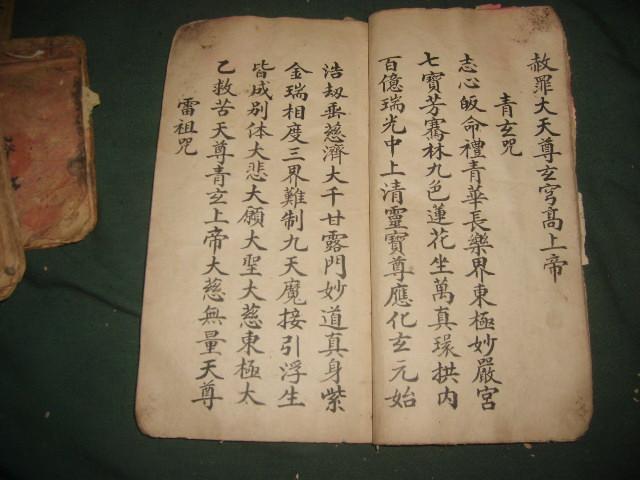 赦罪大天尊玄穹高上帝
青玄咒
志心皈命禮青華長樂界東極妙嚴宮
七寶芳騫林九色蓮花坐萬真環拱内
百億瑞光中上清靈寶尊應化玄元始
浩刼垂慈濟大千甘露門妙道真身紫
金瑞相度三界難制九天魔接引浮生
皆成别体大悲大願大聖大慈東極太
乙救苦天尊青玄上帝大慈無量天尊
雷祖咒